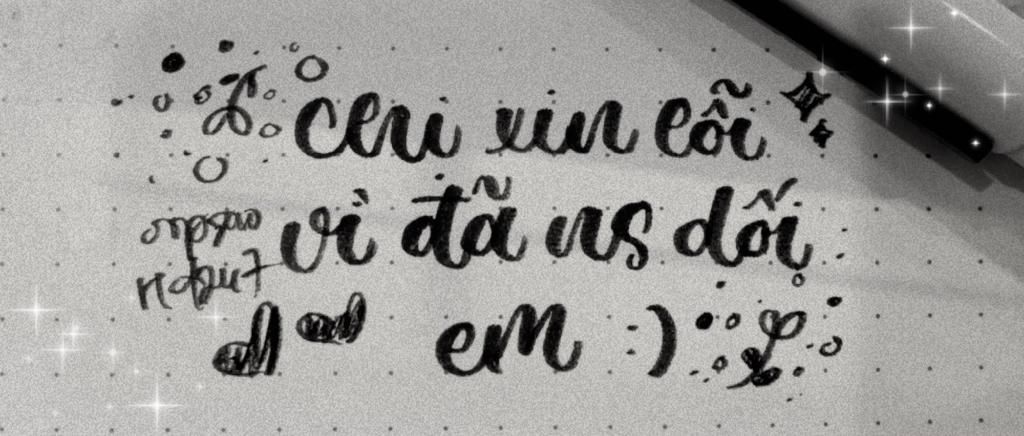 Chị xin lỗi
vì đã ns dối
em :)